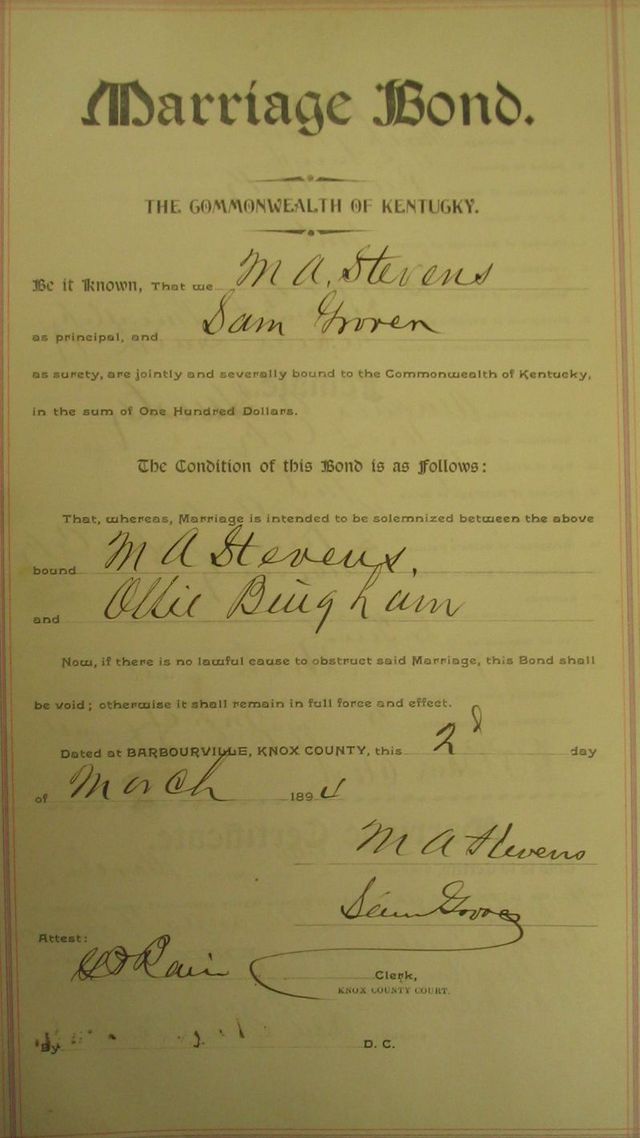 Marriage Bond.
THE COMMONWEALTH OF KENTUCKY.
Be it Known, That we M A. Stevens
as principal, and Sam Groven
as surety, are jointly and severally bound to the Commonwealth of Kentucky,
in the sum of One Hundred Dollars.
The Condition of this Bond is as Follows:
That, whereas, Marriage is intended to be solemnized between the above
bound M A Stevens,
and Ollie Bingham
Now, if there is no lawful cause to obstruct said Marriage, this Bond shall
be void; otherwise it shall remain in full force and effect.
Dated at BARBOURVILLE, KNOX COUNTY, this 2d day
of March 1894
M A Stevens
Sam
Attest:
Clerk,
KNOX COUNTY COURT.
By D. C.